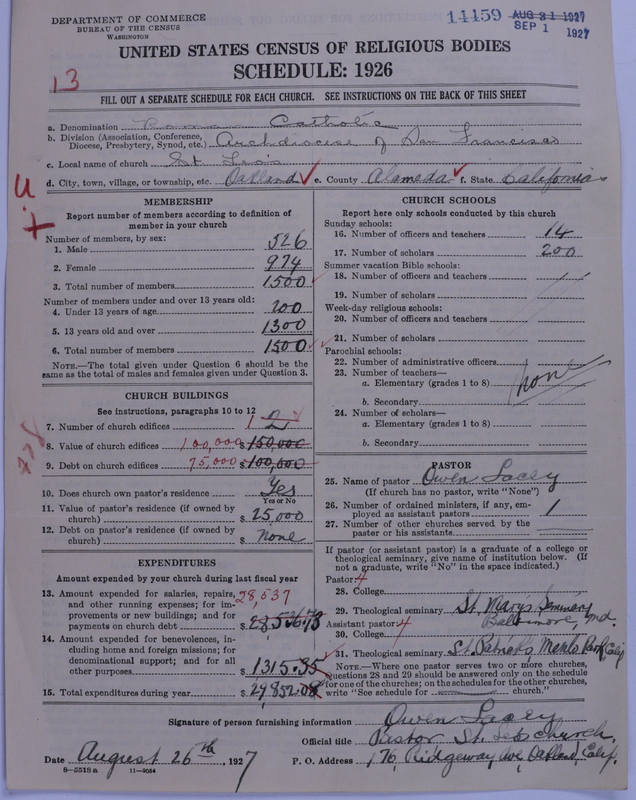 DEPARTMENT OF COMMERCE
BUREAU OF THE CENSUS
WASHINGTON
14459 AUG 31 1927
SEP 1 1927
UNITED STATES CENSUS OF RELIGIOUS BODIES
SCHEDULE: 1926
13
FILL OUT A SEPARATE SCHEDULE FOR EACH CHURCH. SEE INSTRUCTIONS ON THE BACK OF THIS SHEET
a. Denomination Roman Catholic
b. Division (Association, Conference, Diocese, Presbytery, Synod, etc.) Archdiocese of San Francisco
c. Local name of church St Leo's
d. City, town, village, or township, etc. Oakland e. County Alameda f. State California
MEMBERSHIP
Report number of members according to definition of
member in your church
Number of members, by sex:
1. Male 526
2. Female 974
3. Total number of members 1500
Number of members under and over 13 years old:
4. Under 13 years of age 200
5. 13 years old and over 1300
6. Total number of members 1500
NOTE.—The total given under Question 6 should be
same as the total of males and females given under Question 3.
CHURCH BUILDINGS
See instructions, paragraphs 10 to 12
7. Number of church edifices 1 2
8. Value of church edifices 100,000 $150,000
9. Debt on church edifices 75,000 $100,000
10. Does church own pastor's residence Yes
Yes or No
11. Value of pastor's residence (if owned by
church) $25,000
12. Debt on pastor's residence (if owned by
church) $ None
EXPENDITURES
Amount expended by your church during last fiscal year
13. Amount expended for salaries, repairs, 28,537
and other running expenses; for im-
provements or new buildings; and for
payments on church debt $28,536.73
14. Amount expended for benevolences, in-
cluding home and foreign missions; for
denominational support; and for all
other purposes $1315.35
15. Total expenditures during year $29,852.08
CHURCH SCHOOLS
Report here only schools conducted by this church
Sunday schools:
16. Number of officers and teachers 14
17. Number of scholars 200
Summer vacation Bible schools:
18. Number of officers and teachers
19. Number of scholars
Week-day religious schools:
20. Number of officers and teachers
21. Number of scholars
Parochial schools:
22. Number of administrative officers
23. Number of teachers—
a. Elementary (grades 1 to 8) none
b. Secondary
24. Number of scholars—
a. Elementary (grades 1 to 8)
b. Secondary
PASTOR
25. Name of pastor Owen Lacey
(If church has no pastor, write "None")
26. Number of ordained ministers, if any, em-
ployed as assistant pastors 1
27. Number of other churches served by the
pastor or his assistants
If pastor (or assistant pastor) is a graduate of a college or
theological seminary, give name of institution below. (If
not a graduate, write "No" in the space indicated.)
Pastor: 4
28. College
29. Theological seminary St. Mary's Seminary
Baltimore, Md.
Assistant pastor: 4
30. College
31. Theological seminary St. Patrick's Menlo Park, Calif
NOTE.—Where one pastor serves two or more churches,
questions 28 and 29 should be answered only on the schedule
for one of the churches; on the schedules for the other churches,
write "See schedule for church."
Signature of person furnishing information Owen Lacey
Official title Pastor St. Leo's Church,
Date August 26th, 1927 P. O. Address 176 Ridgeway Ave, Oakland, Calif.
8—5518 a 11—9054